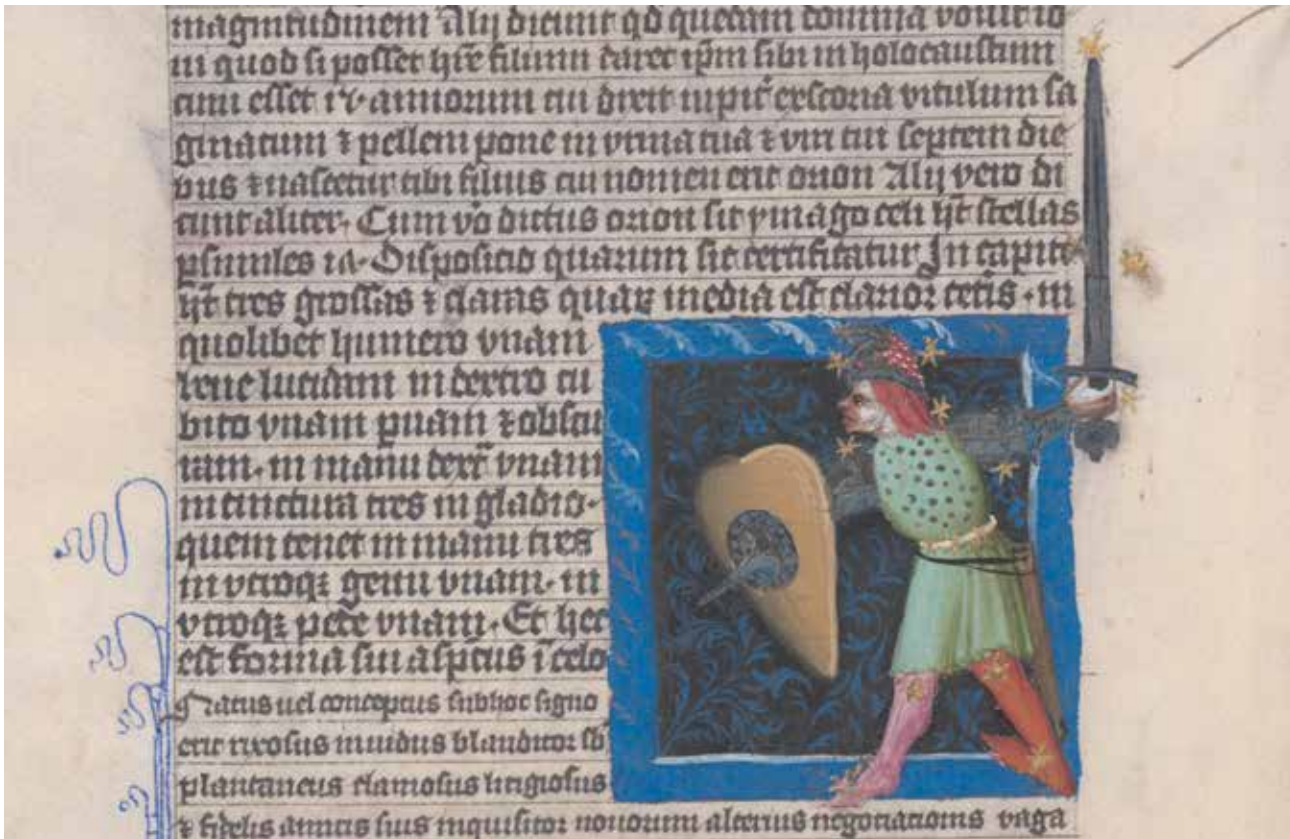 magnitudinem Alij dicunt qd quedam domina voluit io
in quod si posset hre filium daret ipm sibi in holocaustum
cum esset ix annorum cui dixit iupit' excoria vitulum sa
ginatum ⁊ pellem pone in vrina tua ⁊ viri tui septem die
bus ⁊ nascetur tibi filius cui nomen erit orion Alij vero di
cunt aliter. Cum vo dictus orion sit ymago celi ht stellas
psimiles 18. Disposicio quarum sic certificatur In capite
ht tres grossas ⁊ claras quaꝝ media est clarior cetis. in
quolibet humero vnam
bene lucidam in dextro cu
bito vnam pruam ⁊ obscu
ram. in manu dext' vnam
in cinctura tres in gladio.
quem tenet in manu tres
in vtroqꝫ genu vnam. in
vtroqꝫ pede vnam. Et hec
est forma sui aspcus i celo
Natus uel conceptus sub hoc signo
erit rixosus inuidus blanditor sb
plantancus clamosus litigiosus
⁊ fidelis amicis suis inquisitor nouorum alterius negociacionis vaga